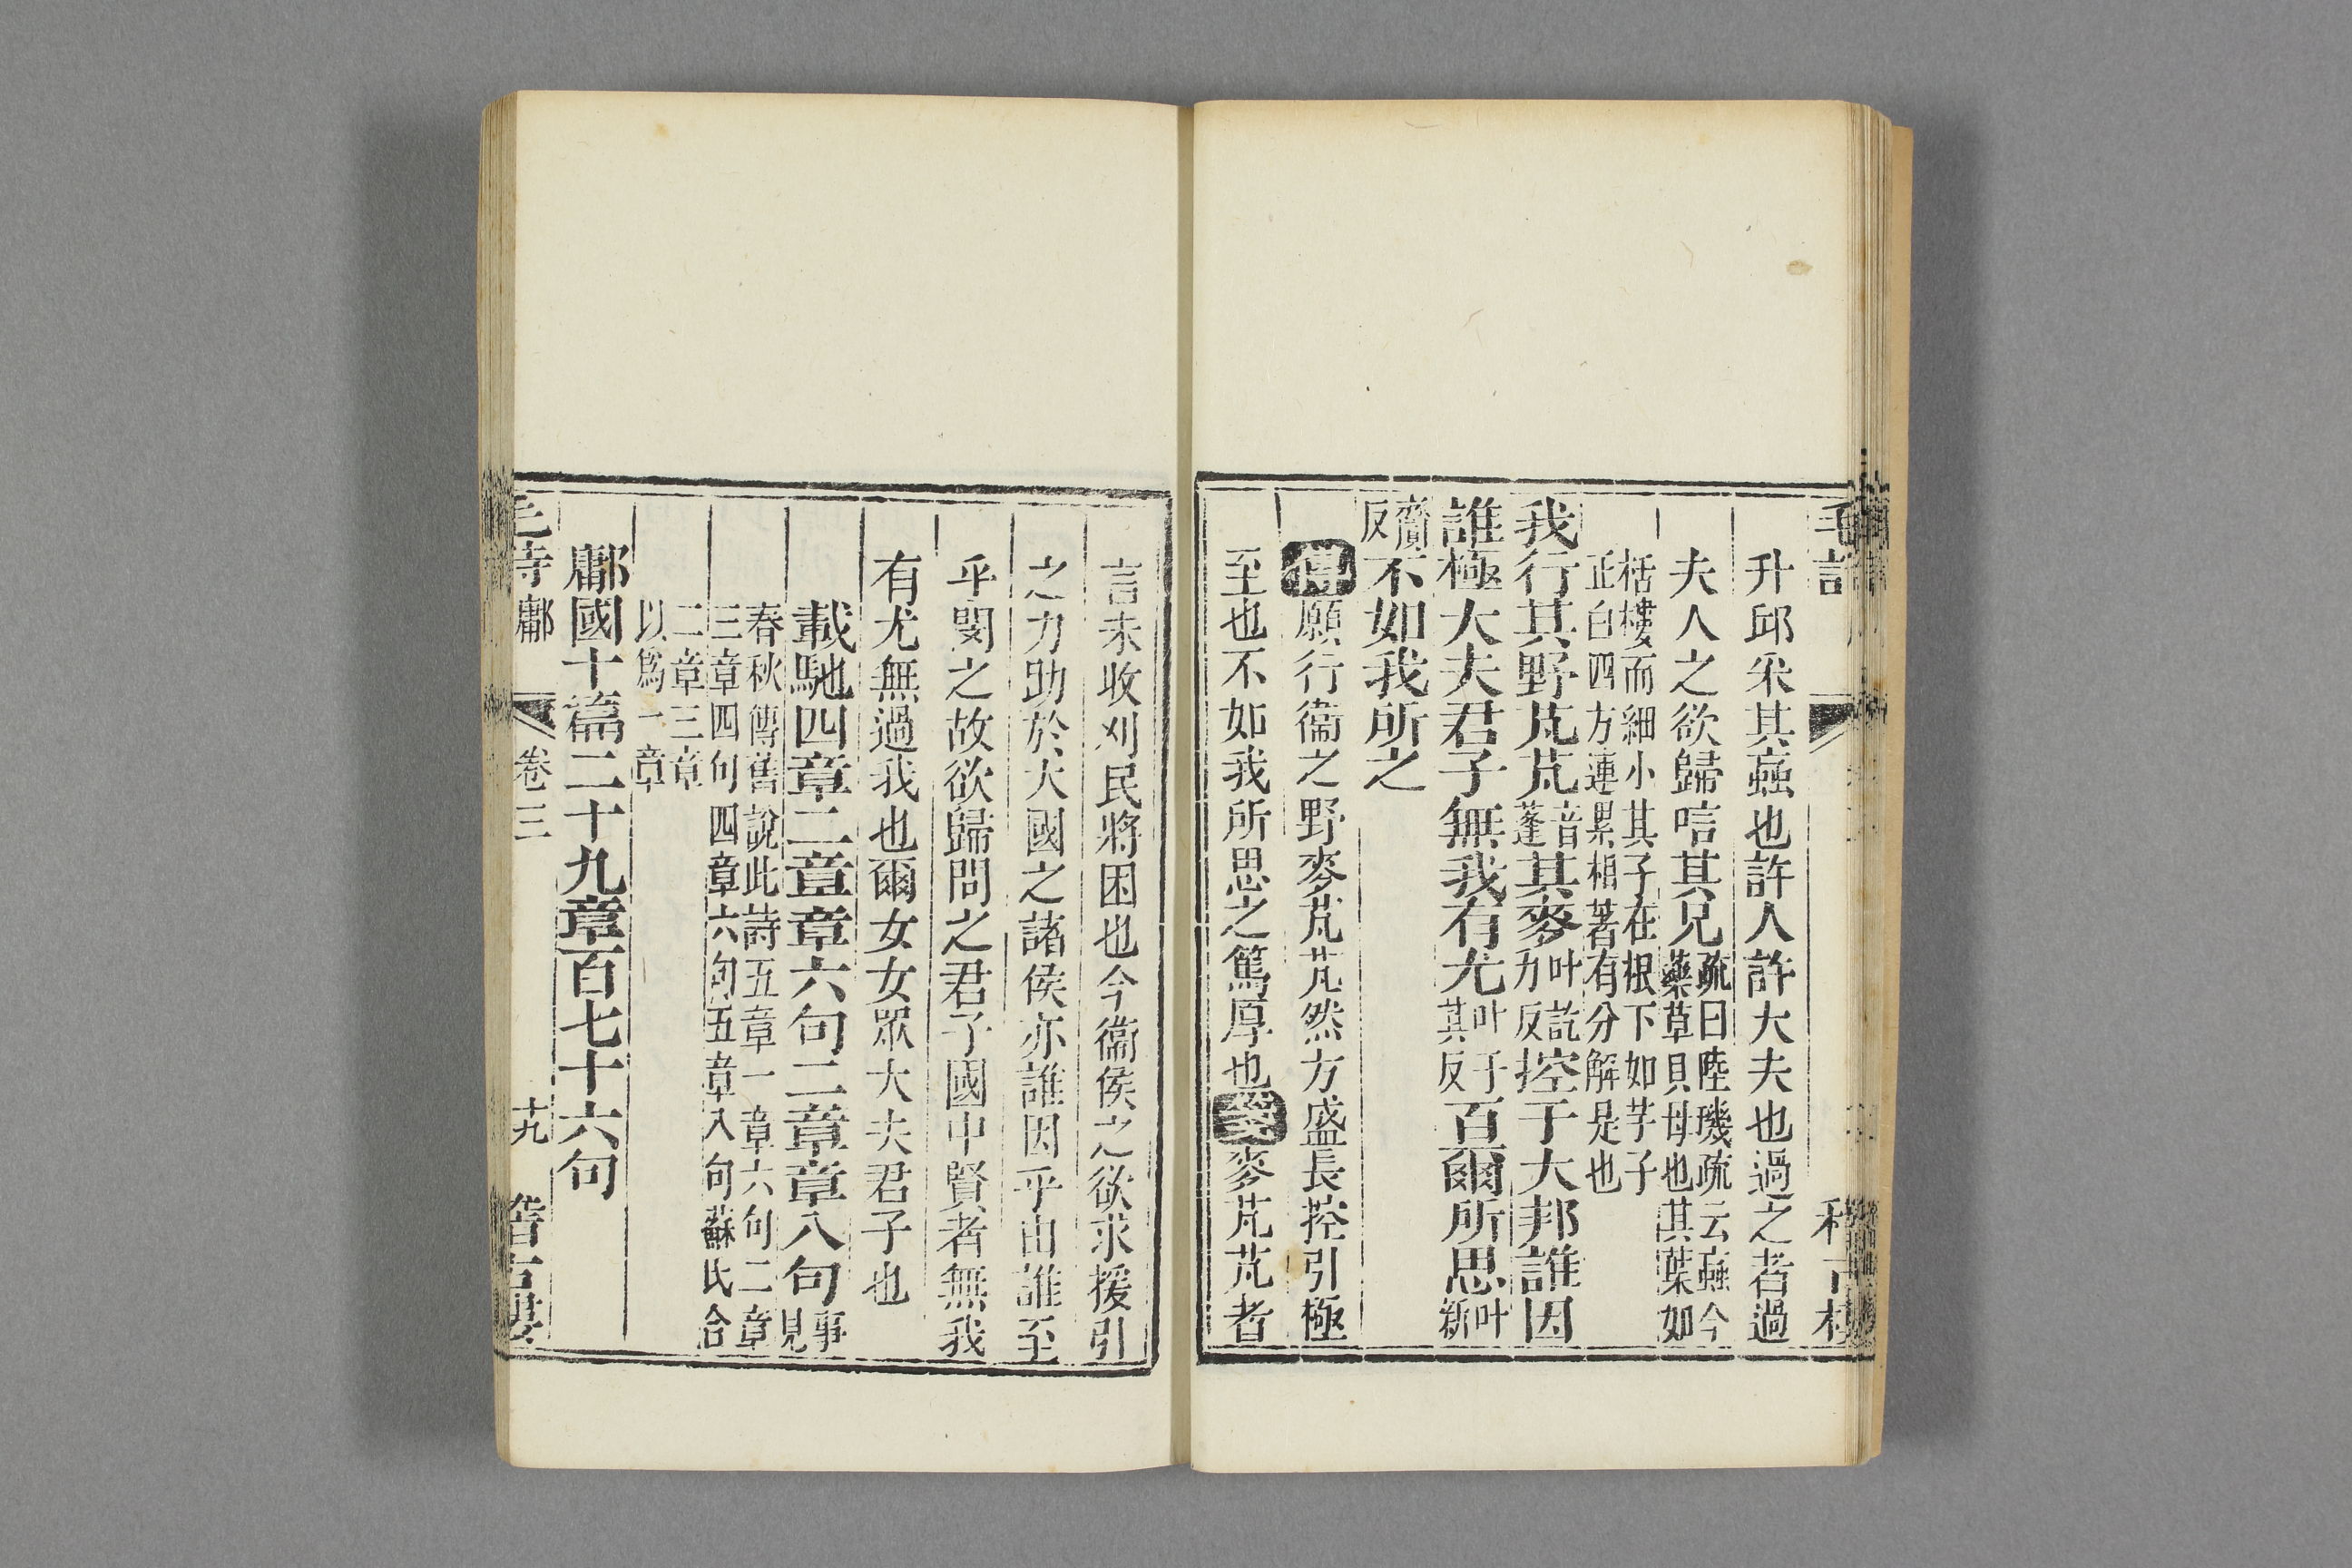 升邱采其蝱也許人許大夫也過之者過
夫人之欲歸唁其兄疏曰陸璣疏云蝱今
藥草貝母也其葉如
栝樓而細小其子在根下如芋子
正白四方連累相著有分解是也
我行其野芃芃音蓬其麥叶訖力反控于大邦誰因
誰極大夫君子無我有尤叶于其反百爾所思叶新
齎反不如我所之
傳願行衞之野麥芃芃然方盛長控引極
至也不如我所思之篤厚也箋麥芃芃者
言未收刈民將困也今衞侯之欲求援引
之力助於大國之諸侯亦誰因乎由誰至
乎閔之故欲歸問之君子國中賢者無我
有尤無過我也爾女女眾大夫君子也
載馳四章二章章六句二章章八句事見
春秋傳舊說此詩五章一章六句二章
三章四句四章六句五章八句蘇氏合
二章三章
以爲一章
鄘國十篇二十九章百七十六句
毛詩 鄘 卷三 十九